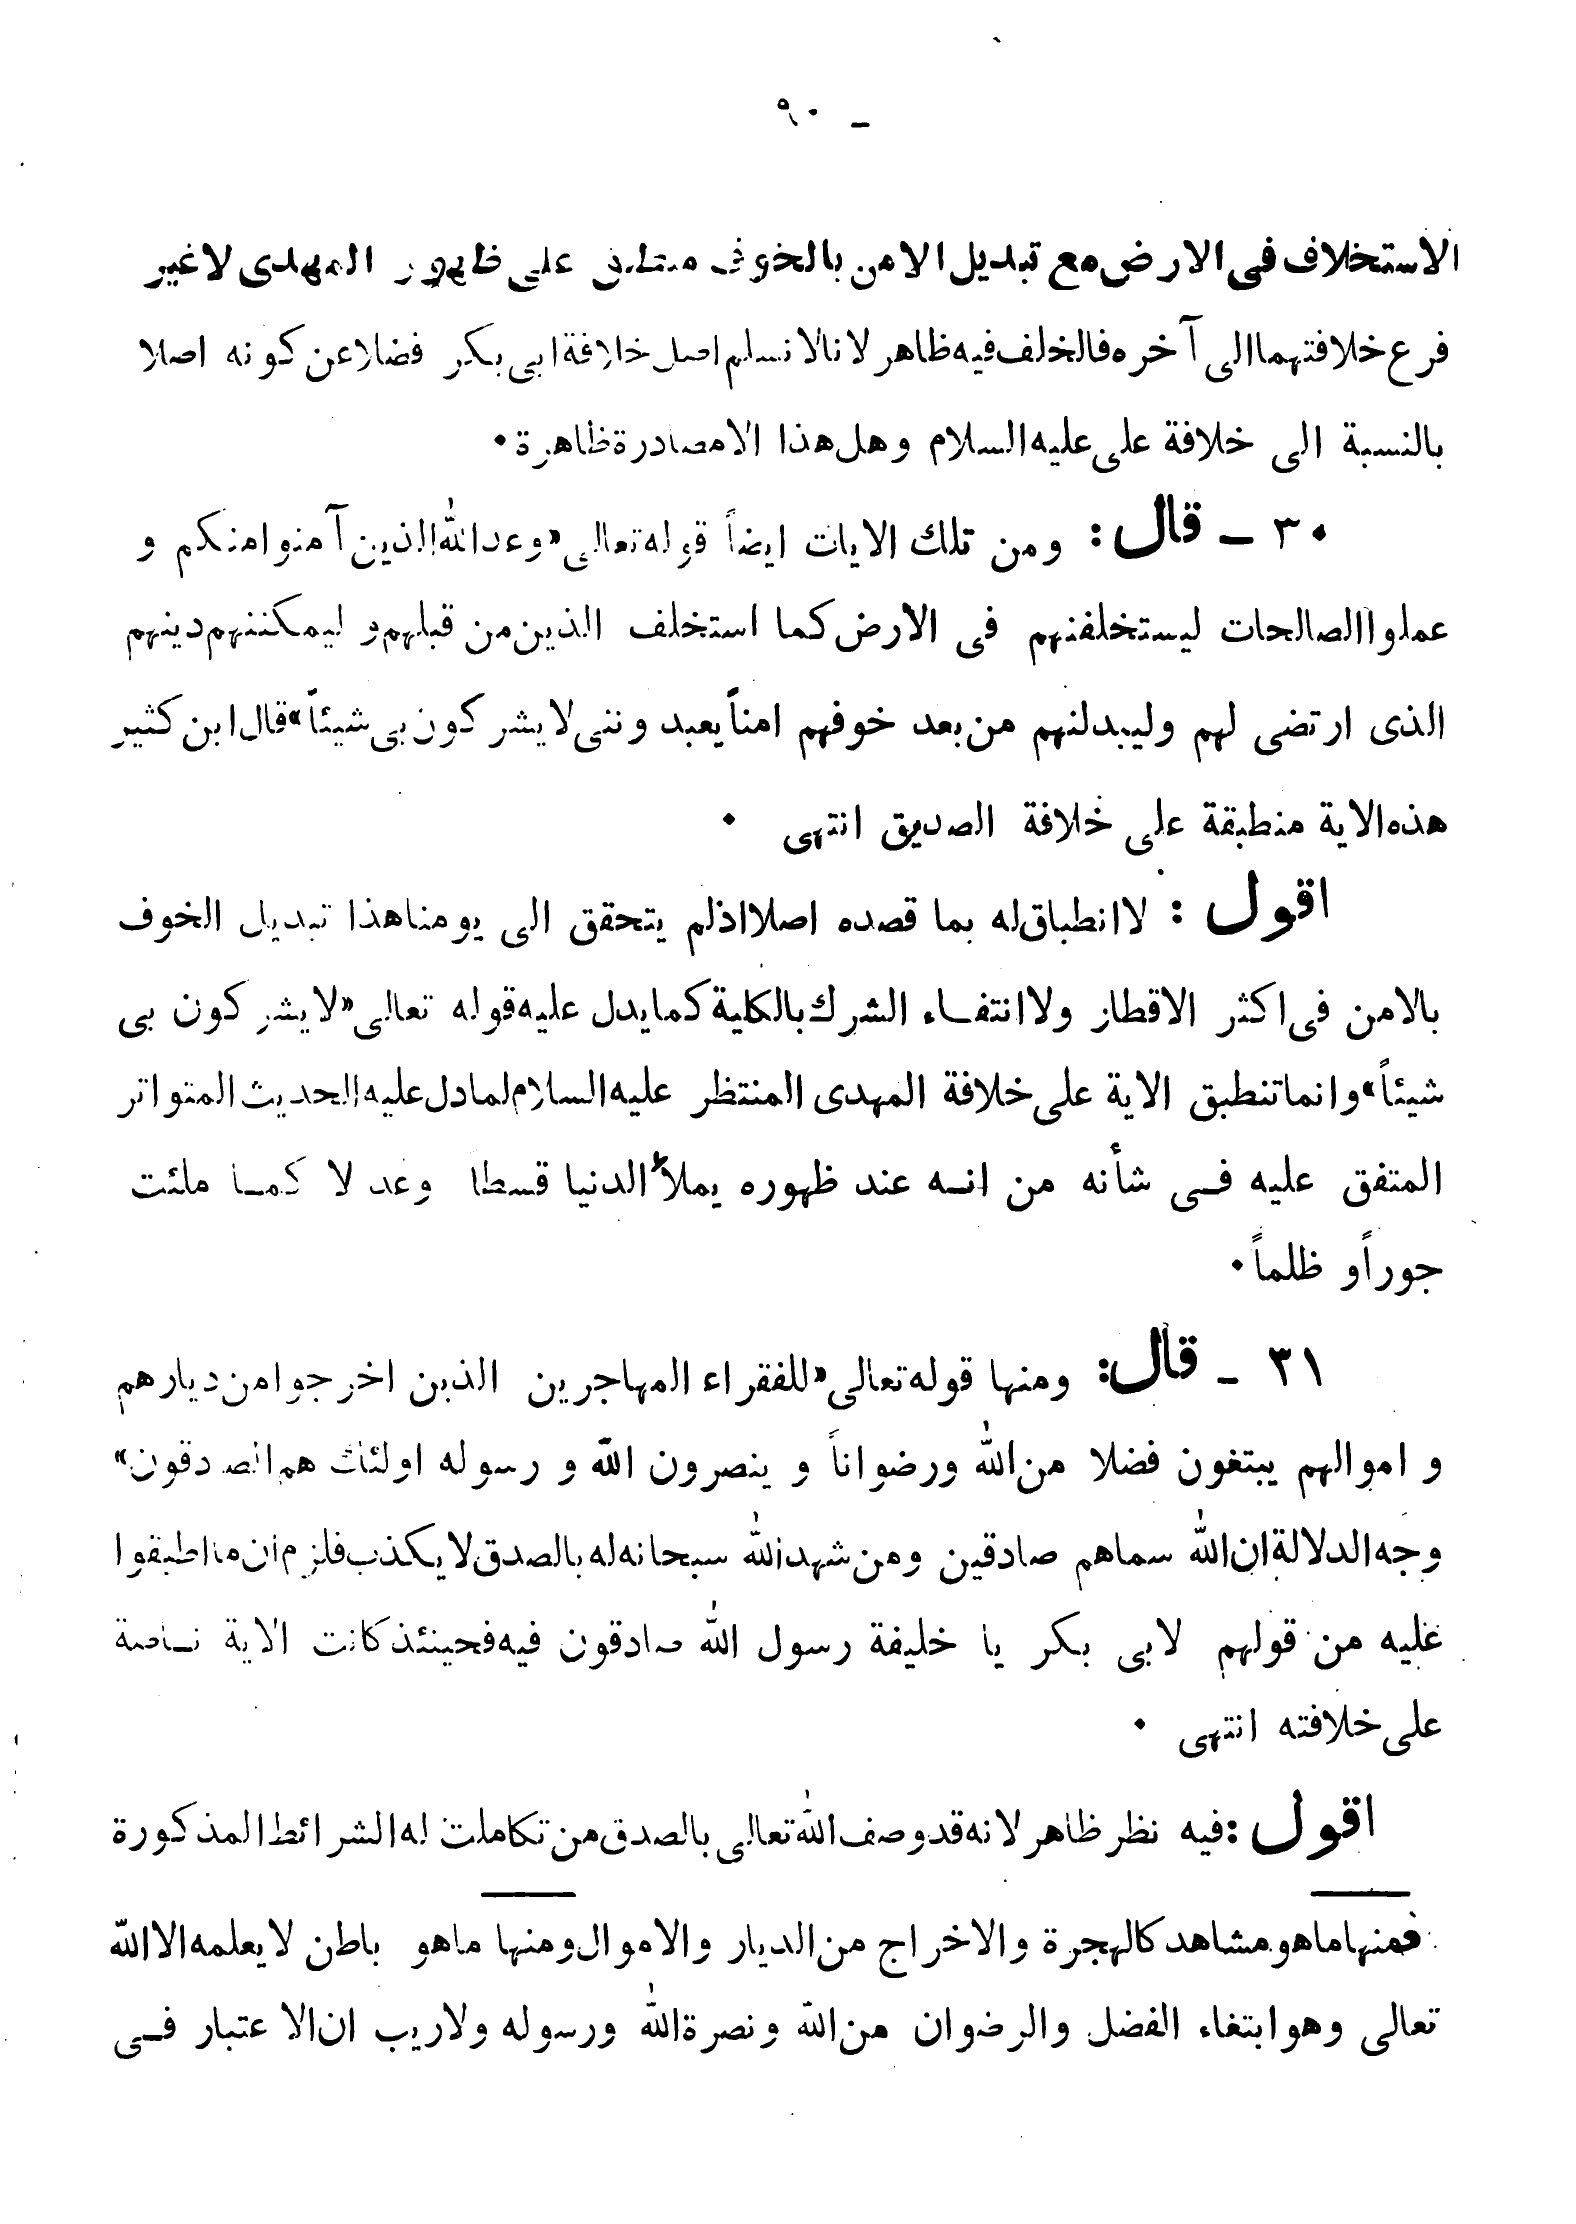 ٩٠ –
الاستخلاف فى الارض مع تبديل الامن بالخوف منطبق على ظهور المهدى لاغير
فرع خلافتهما الى آخره فالخلف فيه ظاهر لانا لا نسلم اصل خلافة ابى بكر فضلا عن كونه اصلا
بالنسبة الى خلافة على عليه السلام وهل هذا الا مصادرة ظاهرة.
٣٠ – قال: ومن تلك الايات ايضاً قوله تعالى «وعد الله الذين آمنوا منكم و
عملوا الصالحات ليستخلفنهم فى الارض كما استخلف الذين من قبلهم و ليمكننهم دينهم
الذى ارتضى لهم وليبدلنهم من بعد خوفهم امناً يعبدوننى لايشركون بى شيئاً» قال ابن كثير
هذه الاية منطبقة على خلافة الصديق انتهى .
اقول : لا انطباق له بما قصده اصلا اذلم يتحقق الى يومنا هذا تبديل الخوف
بالامن فى اكثر الاقطار ولا انتفاء الشرك بالكلية كما يدل عليه قوله تعالى «لايشركون بى
شيئاً» وانما تنطبق الاية على خلافة المهدى المنتظر عليه السلام لما دل عليه الحديث المتواتر
المتفق عليه فى شأنه من انه عند ظهوره يملأ الدنيا قسطا وعدلا كما ملئت
جوراً و ظلماً.
٣١ – قال: ومنها قوله تعالى «للفقراء المهاجرين الذين اخرجوا من ديارهم
و اموالهم يبتغون فضلا من الله ورضواناً و ينصرون الله و رسوله اولئك هم الصدقون»
وجه الدلالة ان الله سماهم صادقين ومن شهد الله سبحانه له بالصدق لايكذب فلزم ان ما اطبقوا
عليه من قولهم لابى بكر يا خليفة رسول الله صادقون فيه فحينئذ كانت الاية ناصة
على خلافته انتهى .
اقول : فيه نظر ظاهر لانه قد وصف الله تعالى بالصدق من تكاملت له الشرائط المذكورة
فمنها ما هو مشاهد كالهجرة والاخراج من الديار والاموال ومنها ماهو باطن لايعلمه الا الله
تعالى وهو ابتغاء الفضل والرضوان من الله ونصرة الله ورسوله ولاريب ان الا عتبار فى